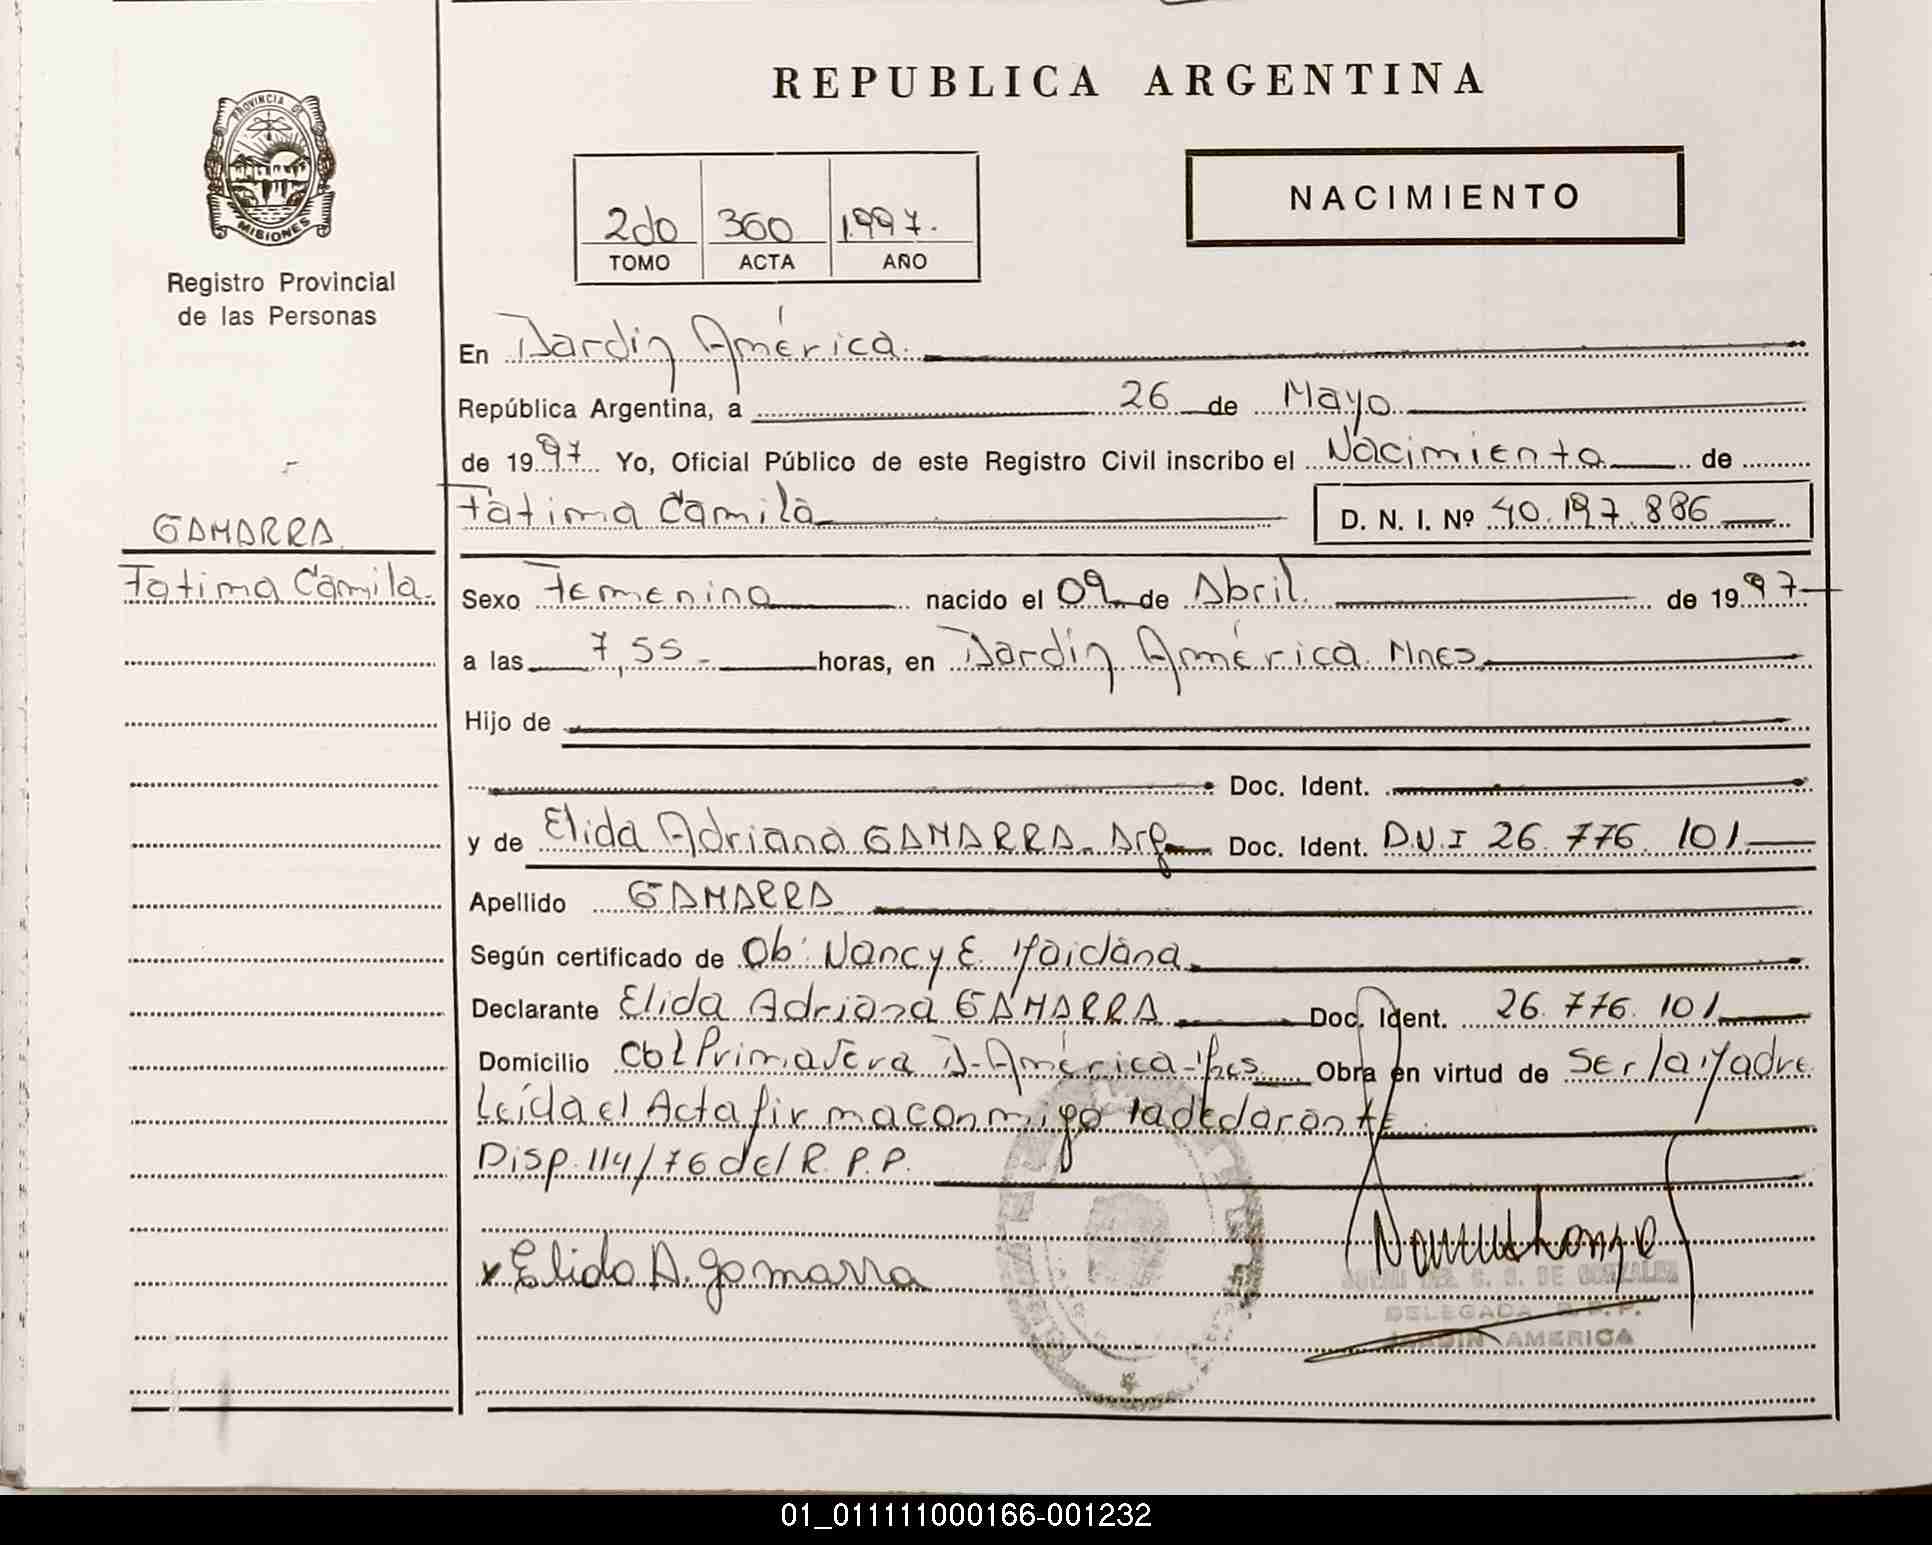 REPUBLICA ARGENTINA
PROVINCIA DE
MISIONES
Registro Provincial
de las Personas
NACIMIENTO
2do 360 1.997.
TOMO ACTA AÑO
En Jardín América.
República Argentina, a 26 de Mayo
de 1997 Yo, Oficial Público de este Registro Civil inscribo el Nacimiento de
GAMARRA
Fatima Camila
Fatima Camila D. N. I. Nº 40.197.886
Sexo Femenino nacido el 09 de Abril. de 1997
a las 7,55 horas, en Jardín América Mnes
Hijo de
Doc. Ident.
y de Elida Adriana GAMARRA. Arg Doc. Ident. D.N.I 26.776.101
Apellido GAMARRA
Según certificado de Ob: Nancy E. Maidana
Declarante Elida Adriana GAMARRA Doc. Ident. 26.776.101
Domicilio Col Primavera J-América- Obra en virtud de Ser la Madre
Leída el Acta firma conmigo la declarante
Disp. 114/76 del R.P.P.
x Elida A. gamarra
DE GONZALEZ
DELEGADA R.P.P.
JARDIN AMERICA
01_011111000166-001232